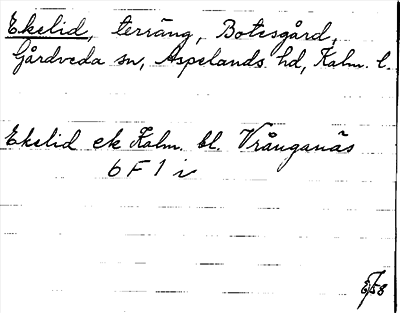 Ekelid, terräng, Botesgård,
Gårdveda sn, Aspelands hd, Kalm. l.
Ekelid ek Kalm. bl. Vrånganäs
6 F 1 i